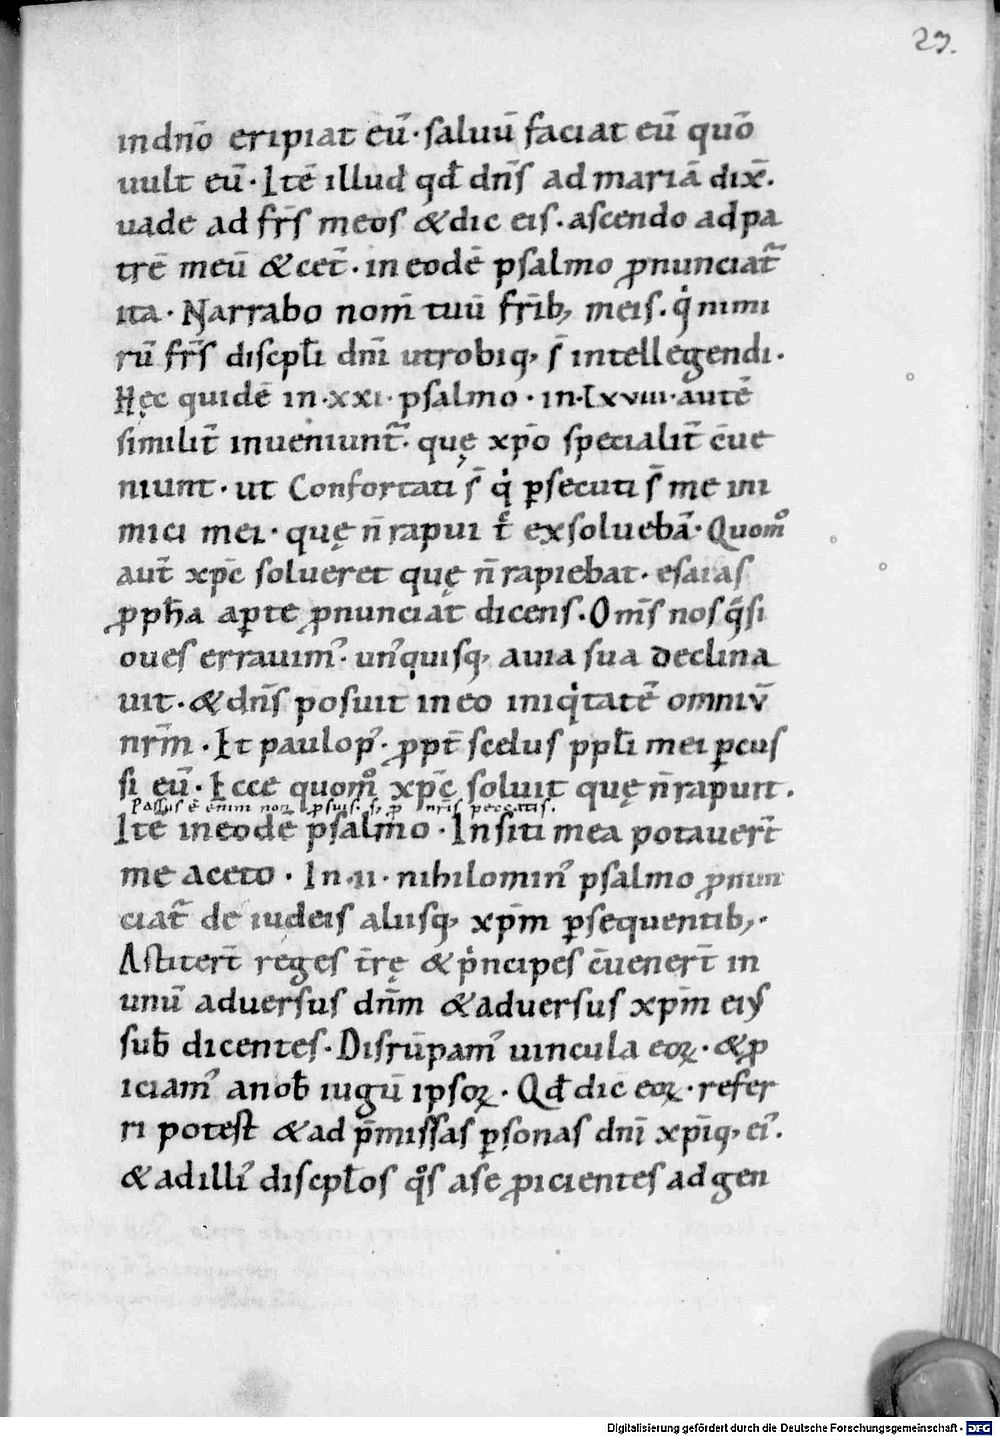 23.
in dnō eripiat eū· saluū faciat eū quō
uult eū· Itē illud qđ dn̄s ad mariā dix̄.
uade ad fr̄s meos & dic eis. ascendo ad pa
trē meū & cet̄· in eodē psalmo ꝓnunciat᷑
ita· Narrabo nom̄ tuū fr̄ib; meis. qͥ nimi
rū fr̄s discpl̄i dn̄i utrobiq; s̄ intellegendi·
Hęc quidē in·xxi·psalmo·in·lxviii·autē
similit̄ inueniunt᷑. quę xp̄o specialit̄ c̄ue
niunt· ut Confortati s̄ qͥ ꝑsecuti s̄ me ini
mici mei· quę n̄ rapui t̄c exsoluebā· Quomº
aut̄ xp̄c solueret quę n̄ rapiebat· esaias
ꝓph̄a aꝑte ꝓnunciat dicens. Om̄s nos qͣsi
oues errauimꝰ· unꝰquisq; a uia sua declina
uit· & dn̄s posuit in eo iniqͥtatē omniū
nr̄m· It paulopꝰ· ꝓpt̄ scelus ppl̄i mei ꝑcus
si eū· Ecce quomº xp̄c soluit quę n̄ rapuit.
Passus ē enim non ꝓ suis. s; ꝓ nr̄is peccatis.
Itē in eodē psalmo· In siti mea potauer̄t
me aceto· In·ii·nihilominꝰ psalmo ꝓnun
ciat᷑ de iudeis aliisq; xp̄m ꝑsequentib;·
Astiter̄t reges t̄rę & pͥncipes c̄uener̄t in
unū aduersus dn̄m & aduersus xp̄m eiꝰ
sub̄ dicentes· Disrūpamꝰ uincula eoꝝ· & ꝓ
iciamꝰ a nob̄ iugū ipsoꝝ· Qđ dic eoꝝ· refer
ri potest & ad p̄missas ꝑsonas dn̄i xp̄iq; eiꝰ.
& ad illiꝰ discpl̄os qͦs a se ꝓicientes ad gen
Digitalisierung gefördert durch die Deutsche Forschungsgemeinschaft - DFG